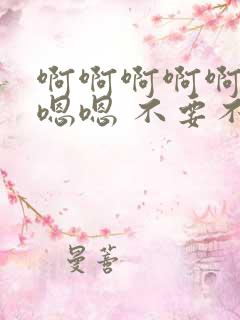 啊啊啊啊啊
嗯嗯 不要不
曼蓍